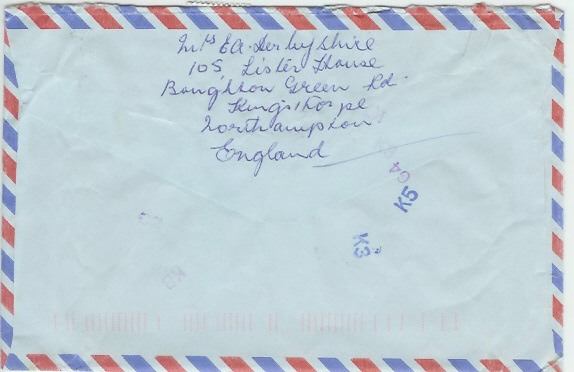 Mrs E A. Derbyshire
105, Lister House
Boughton Green Rd.
Kingsthorpe
Northampton
England
G4
K5
K3
KB